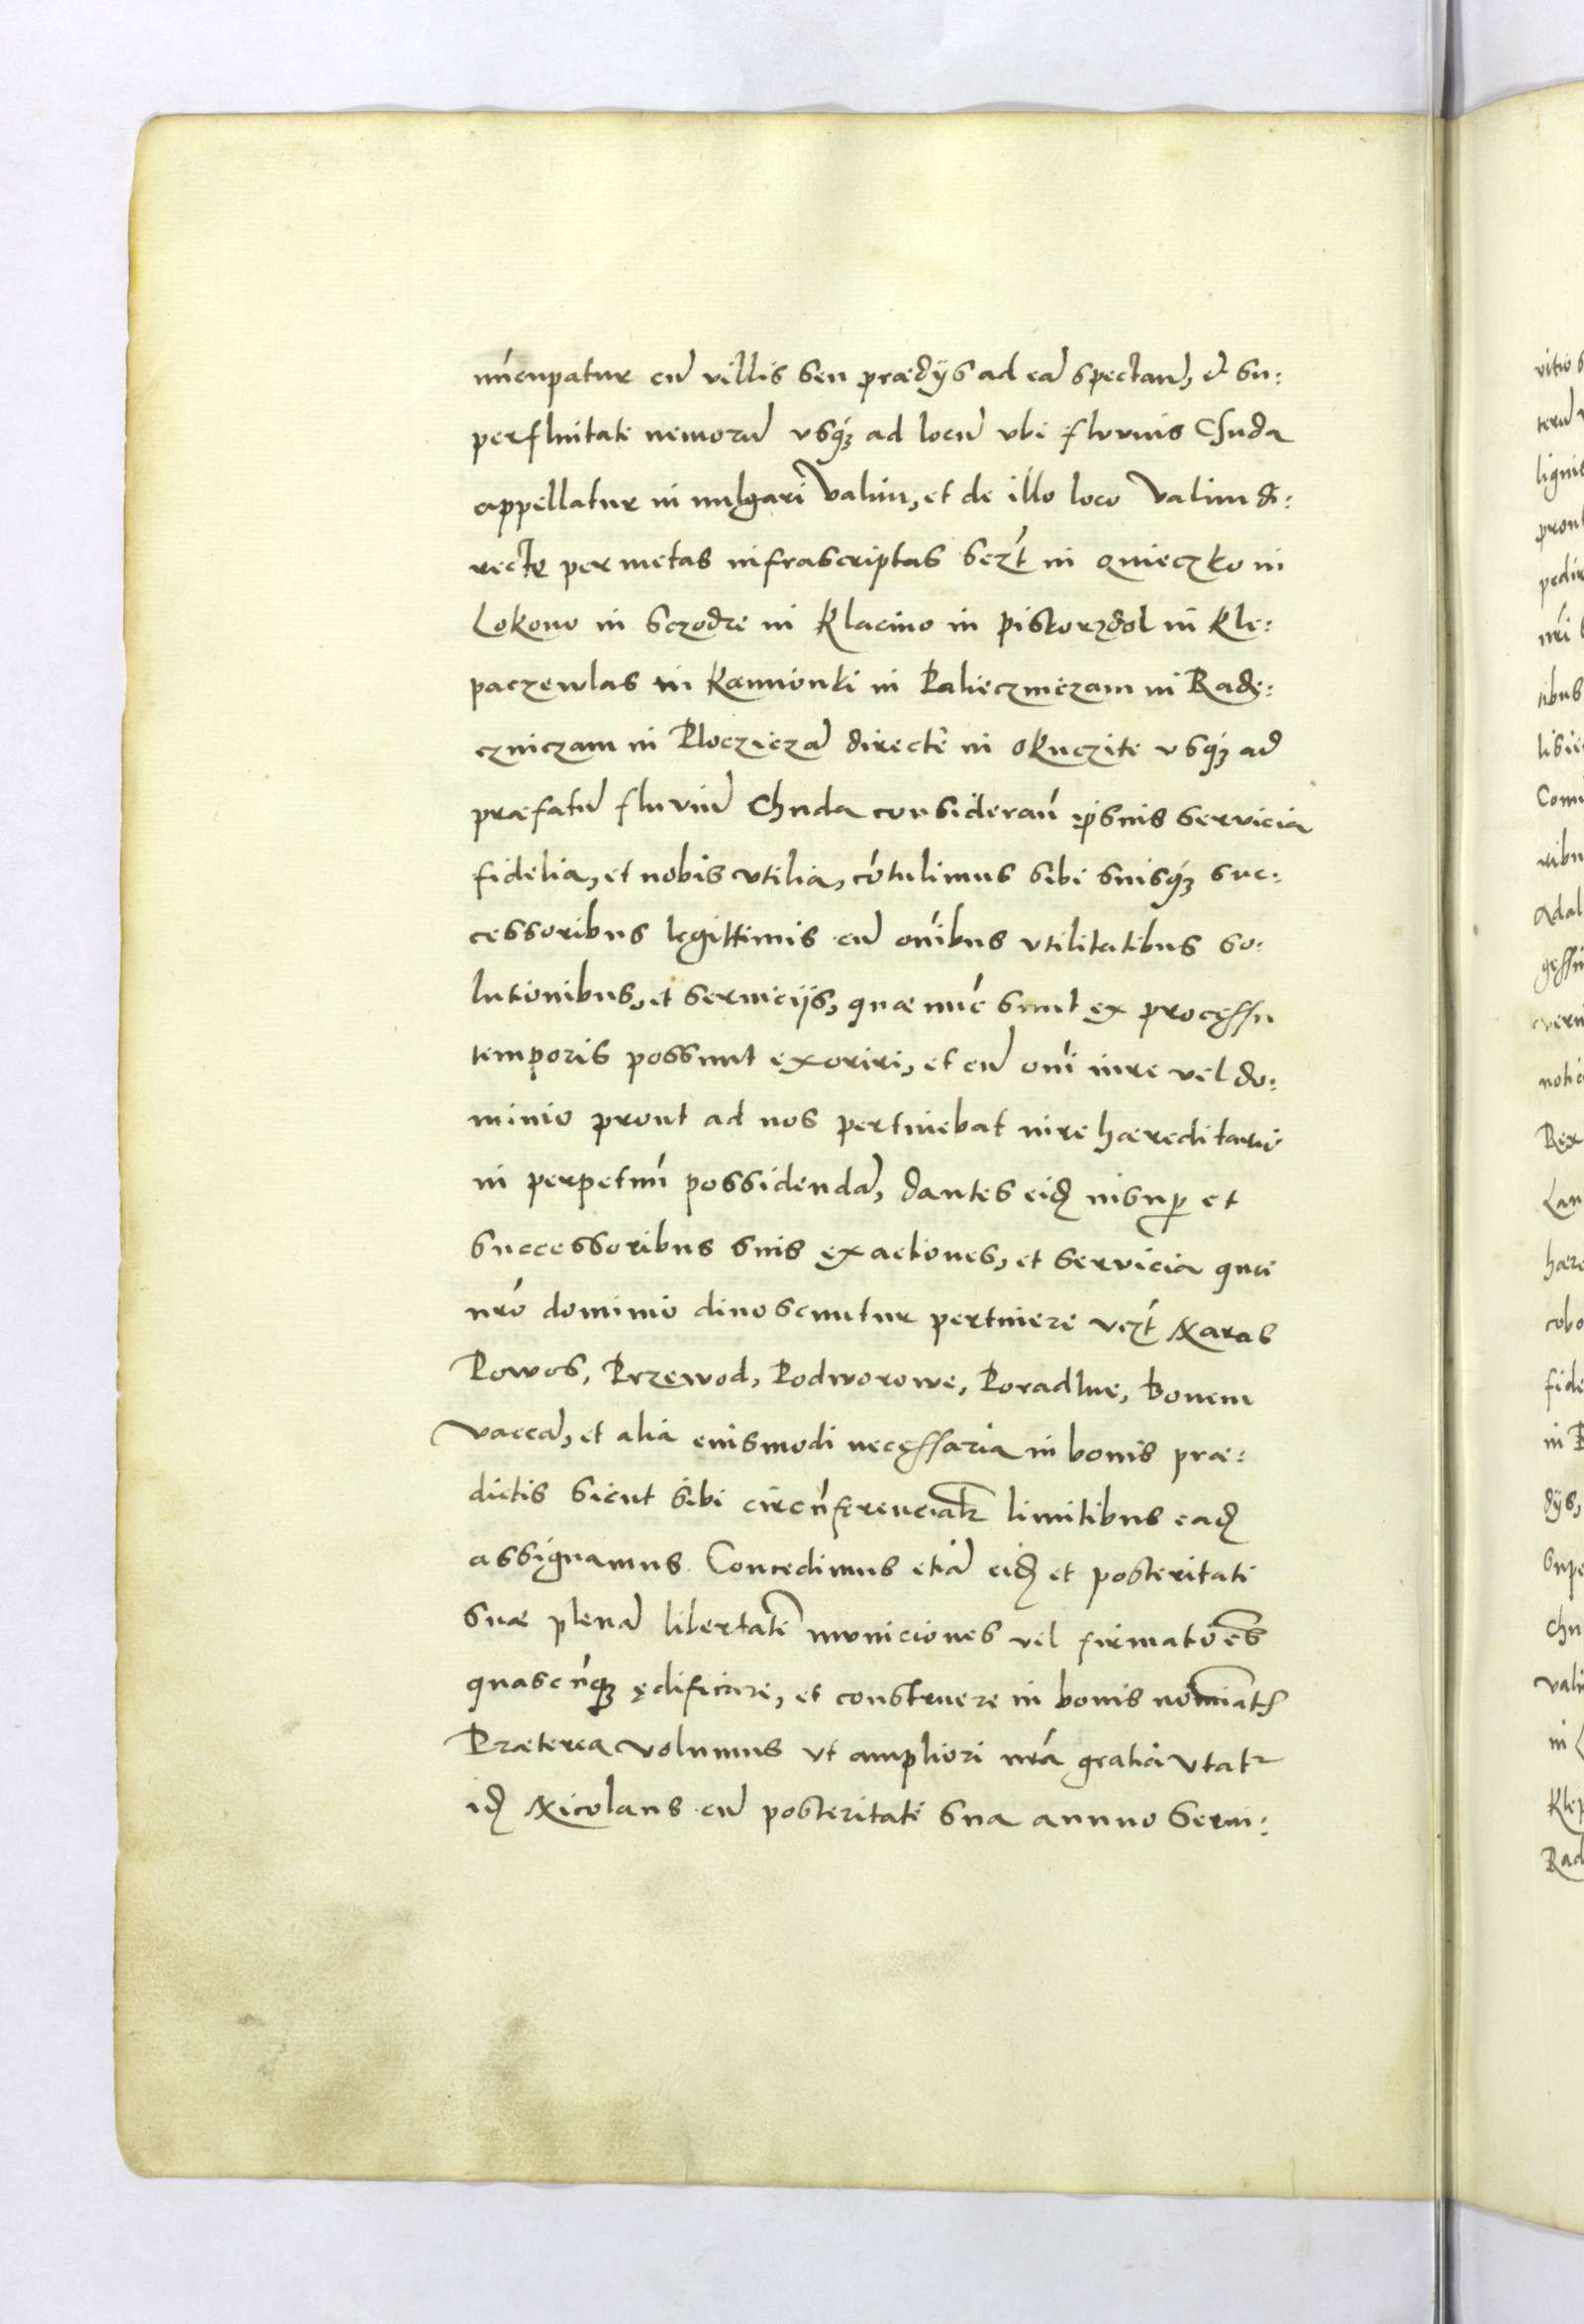 nu̅cupatur cu̅ villis seu prædijs ad ea̅ spectan̅, et su:
perfluitate nemoru̅ vsq́ꝫ ad locu̅ vbi fluuuis Chuda
appellatur in uulgari Valim, et de illo loco Valim di:
recte per metas infrascriptas sczt́ in Quieczko in
Lokono in Sczodre in Klacino in Pistorzdol in Kle:
paczewlas in Kamionki in Palieczmczam in Radę:
czniczam in Ploczicza̅ directe in Okuczite vsq́ꝫ ad
præfatu̅ fluuiu̅ Chuda consideran̅ ip̅sius servicia
fidelia, et nobis vtilia, co̅tulimus sibi suisq́ꝫ suc:
cessoribus legittimis cu̅ om̅ibus vtilitatibus so:
lutionibus, et seruicijs, quæ nu̅c sunt ex processu
temporis possunt exoriri, et cu̅ om̅i iure vel do:
minio prout ad nos pertinebat iure hæreditario
in perpetuu̅ possidenda̅, dantes eid̅ insup̱ et
successoribus suis exactiones, et servicia quæ
nr̅o dominio dinoscuntur pertinere vczt́ Naras
Powos, Przewod, Podworowe, Poradlne, bouem
vacca̅, et alia eiusmodi necessaria in bonis præ:
dictis sicut sibi circu̅ferenciatꝛ limitibus ead̅
assignamus. Concedimus etia̅ eid̅ et posteritati
suæ plena̅ libertate̅ municiones vel firmatio̅es
quascu̅qꝫ ędificare, et construere in bonis nominatꝭ
Præterea volumus vt ampliori nr̅a gratia vtatꝛ
id̅ Nicolaus cu̅ posteritate sua annuo serui:
vitio s
teru̅
lignis
prout
pedi
nr̅i
tibus
Com
ribu
Adal
noti
Rex
Lan
hære
cobo
fide
in P
dijs,
supe
Chu
vali
in
Klep
Rad